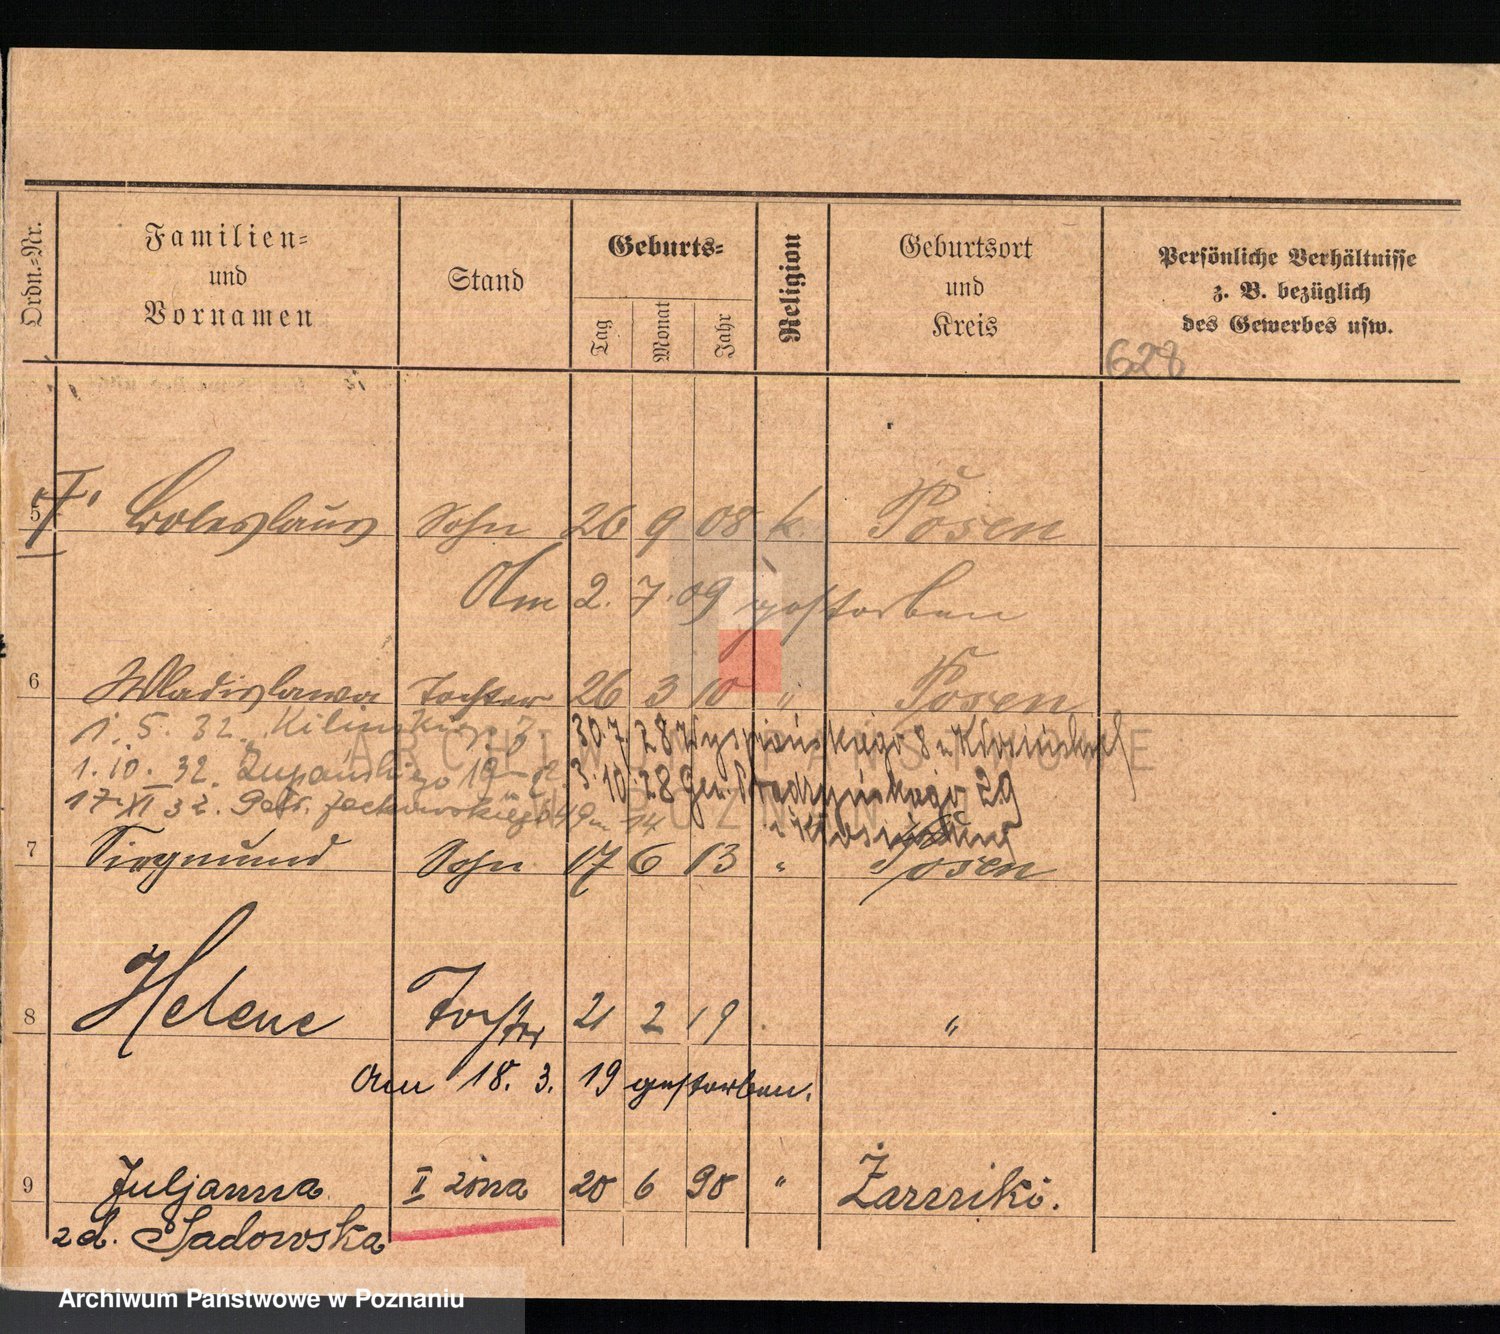 Ordn.=Nr.
Familien=
und
Vornamen
Stand
Geburts=
Tag
Monat
Jahr
Religion
Geburtsort
und
Kreis
Persönliche Verhältnisse
z. B. bezüglich
des Gewerbes usw.
628
5 Boleslaus Sohn 26 9 08 k. Posen
Am 2. 7. 09 gestorben
6 Wladislawa Tochter 26 3 10 " Posen
1. 5. 32. Kilińskiego 7
30.7 28 Wyspiańskiego 8
1.10. 32. Żupańskiego 19
3.10.28 Gen. Prądzyńskiego 29
17 XI 32. Jackowskiego 49 14
7 Siegmund Sohn 17 6 13 " Posen
8 Helene Tochter 21 2 19 "
Am 18. 3. 19 gestorben.
9 Juljanna II żona 20 6 90 "
zd. Sadowska
ARCHIWUM PAŃSTWOWE
W POZNANIU
Archiwum Państwowe w Poznaniu